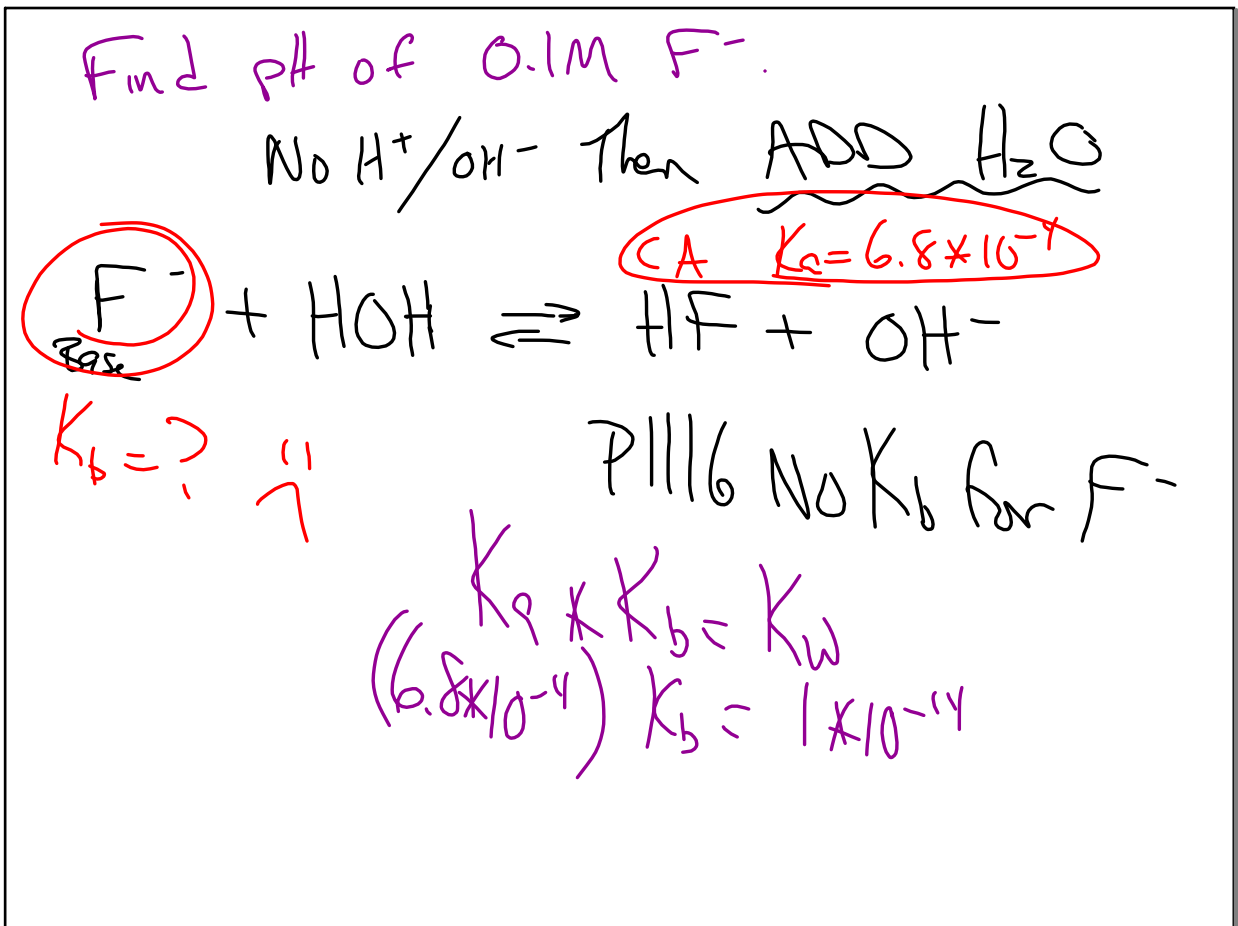 Find pH of 0.1M F⁻.
No H⁺/OH⁻ Then ADD H₂O
CA Ka = 6.8*10⁻⁴
F⁻ + HOH ⇌ HF + OH⁻
Base
Kb = ?
P1116 No Kb for F⁻
Ka * Kb = Kw
(6.8*10⁻⁴) Kb = 1*10⁻¹⁴